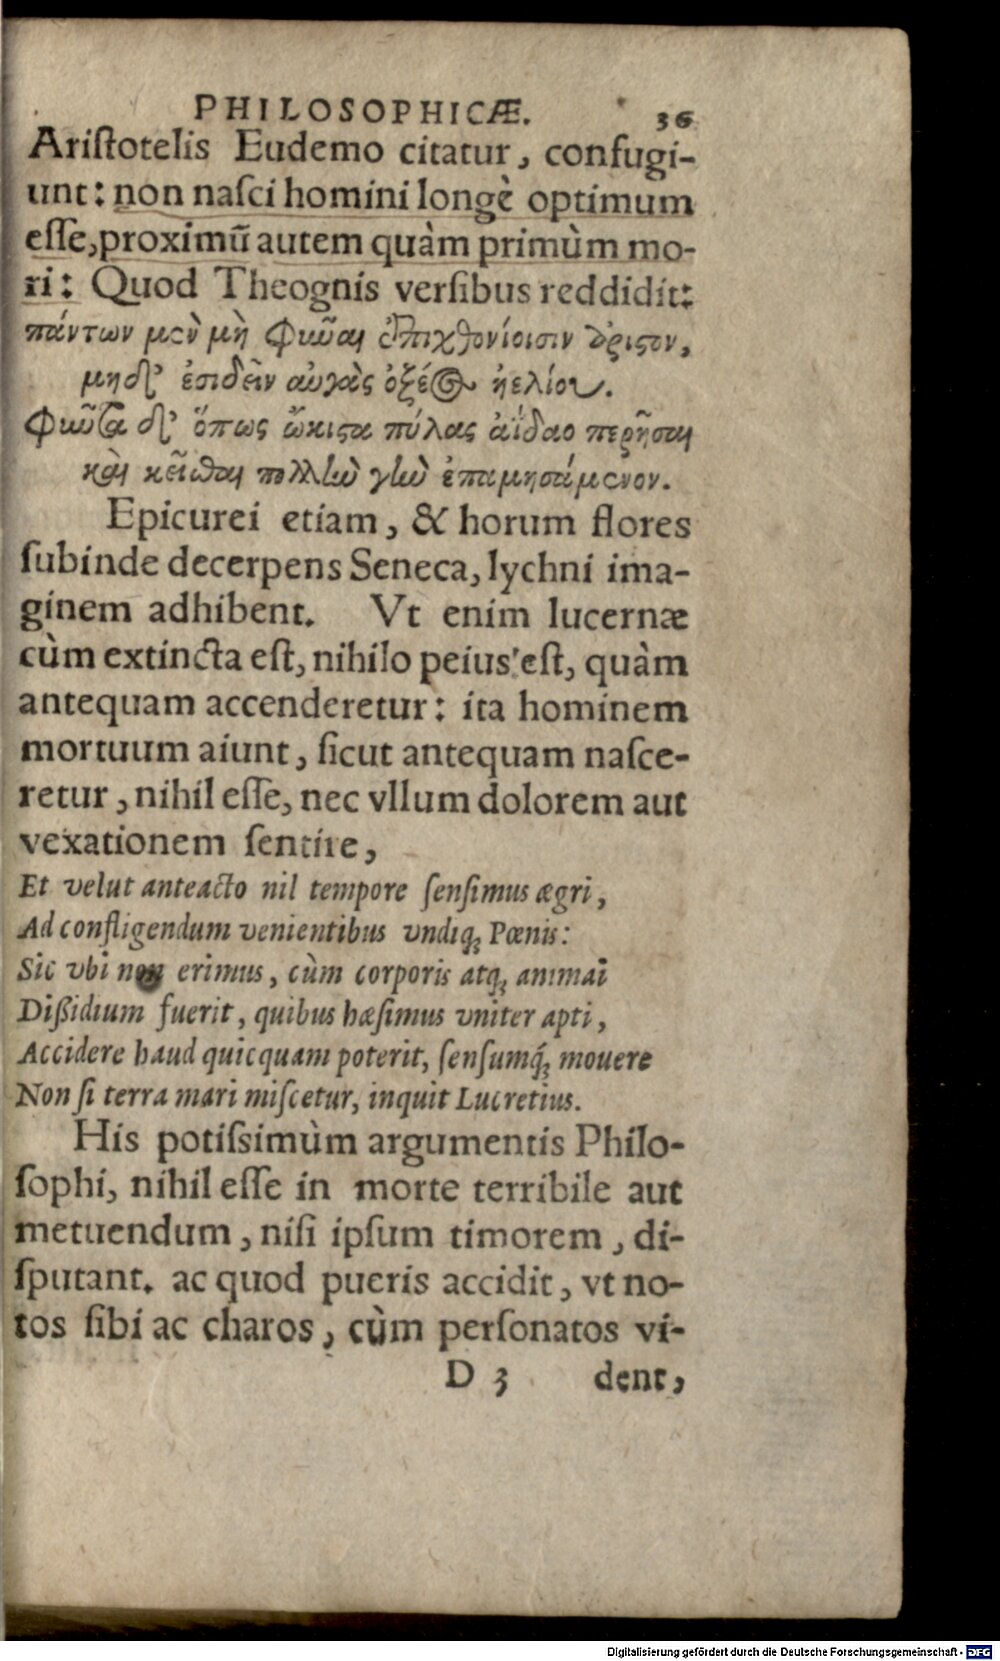 PHILOSOPHICÆ. 36
Ariſtotelis Eudemo citatur, confugi-
unt: non naſci homini longè optimum
eſſe, proximũ autem quàm primùm mo-
ri: Quod Theognis verſibus reddidit:
πάντων μὲν μὴ φῦναι ἐπιχθονίοισιν ἄριστον,
μηδ' ἐσιδεῖν αὐγὰς ὀξέος ἠελίου.
Φῦντα δ' ὅπως ὤκιστα πύλας ἀΐδαο περῆσαι
καὶ κεῖσθαι πολλὴν γῆν ἐπαμησάμενον.
Epicurei etiam, & horum flores
ſubinde decerpens Seneca, lychni ima-
ginem adhibent. Vt enim lucernæ
cùm extincta eſt, nihilo peius eſt, quàm
antequam accenderetur: ita hominem
mortuum aiunt, ſicut antequam naſce-
retur, nihil eſſe, nec vllum dolorem aut
vexationem ſentire,
Et velut anteacto nil tempore ſenſimus ægri,
Ad confligendum venientibus vndiq; Pœnis:
Sic vbi non erimus, cùm corporis atq; animai
Dißidium fuerit, quibus hæſimus vniter apti,
Accidere haud quicquam poterit, ſenſumq́; mouere
Non ſi terra mari miſcetur, inquit Lucretius.
His potiſsimùm argumentis Philo-
ſophi, nihil eſſe in morte terribile aut
metuendum, niſi ipſum timorem, di-
ſputant. ac quod pueris accidit, vt no-
tos ſibi ac charos, cùm perſonatos vi-
D 3 dent,
Digitalisierung gefördert durch die Deutsche Forschungsgemeinschaft - DFG